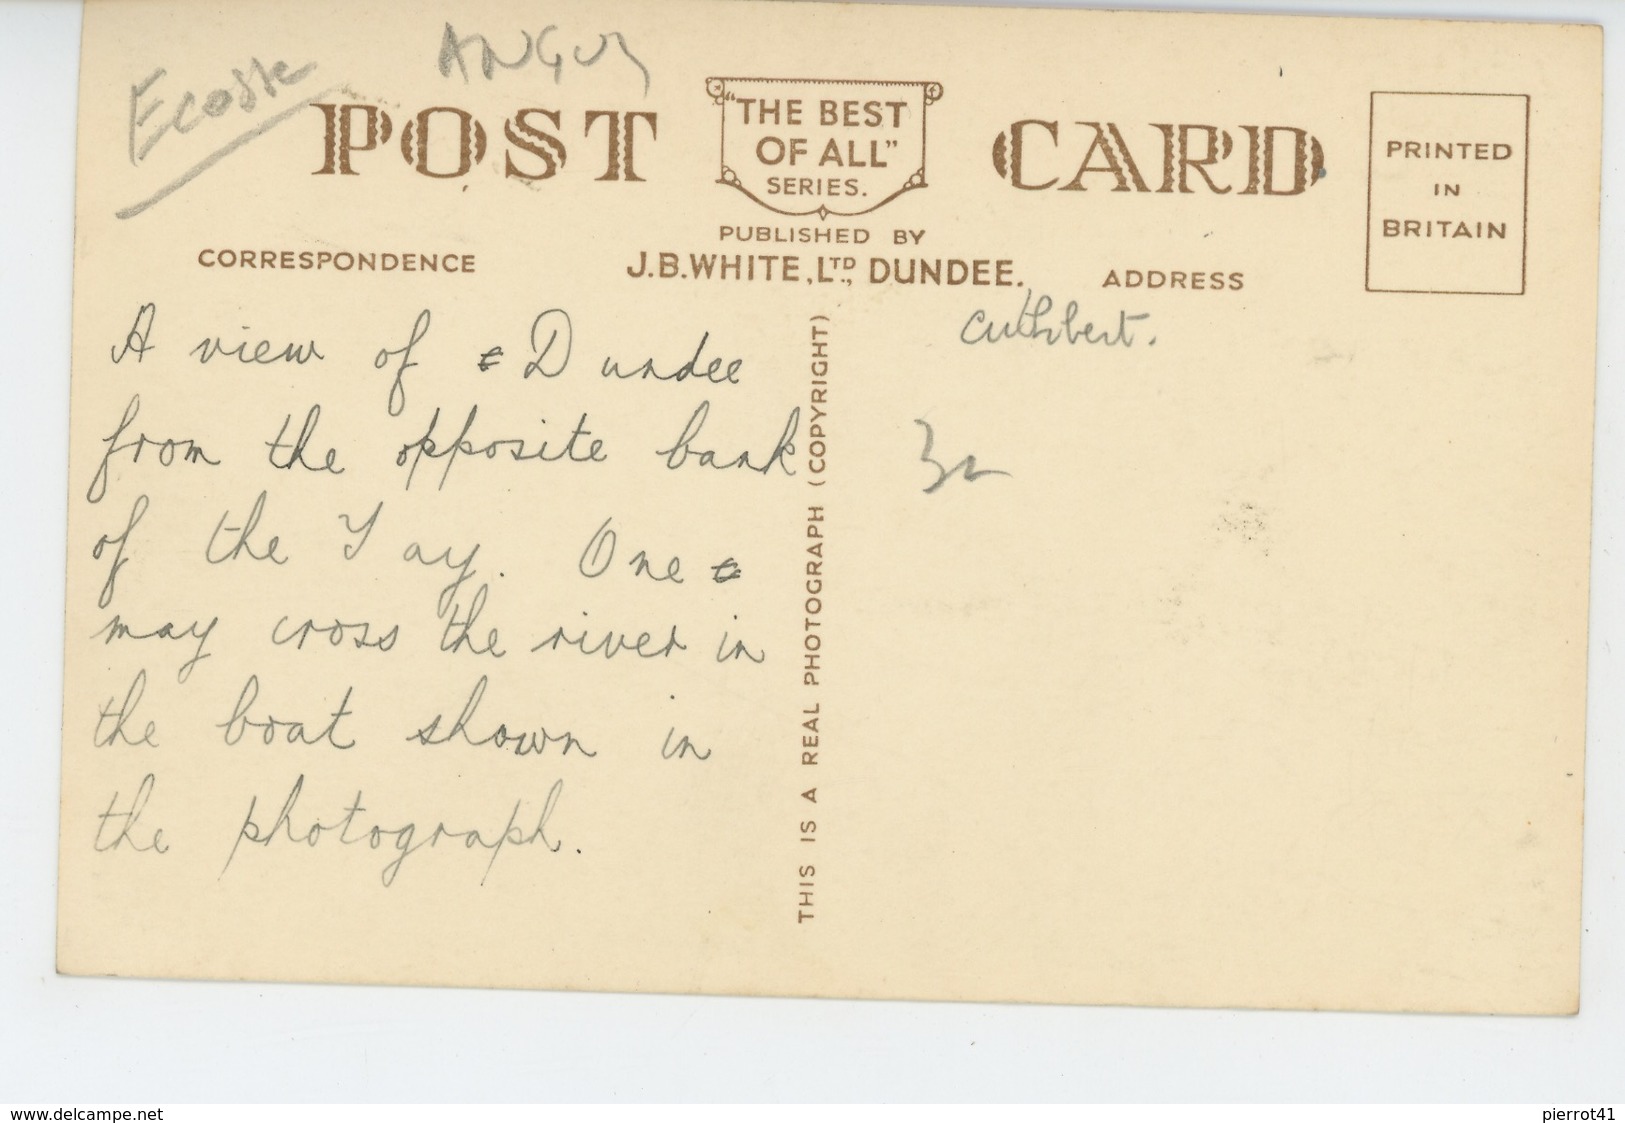 Ecosse
ANGUS
POST
"THE BEST
OF ALL"
SERIES.
CARD
PRINTED
IN
BRITAIN
PUBLISHED BY
J.B.WHITE, LTD., DUNDEE.
CORRESPONDENCE
ADDRESS
A view of Dundee
from the opposite bank
of the Tay. One
may cross the river in
the boat shown in
the photograph.
THIS IS A REAL PHOTOGRAPH (COPYRIGHT)
Cuthbert.
www.delcampe.net
pierrot41